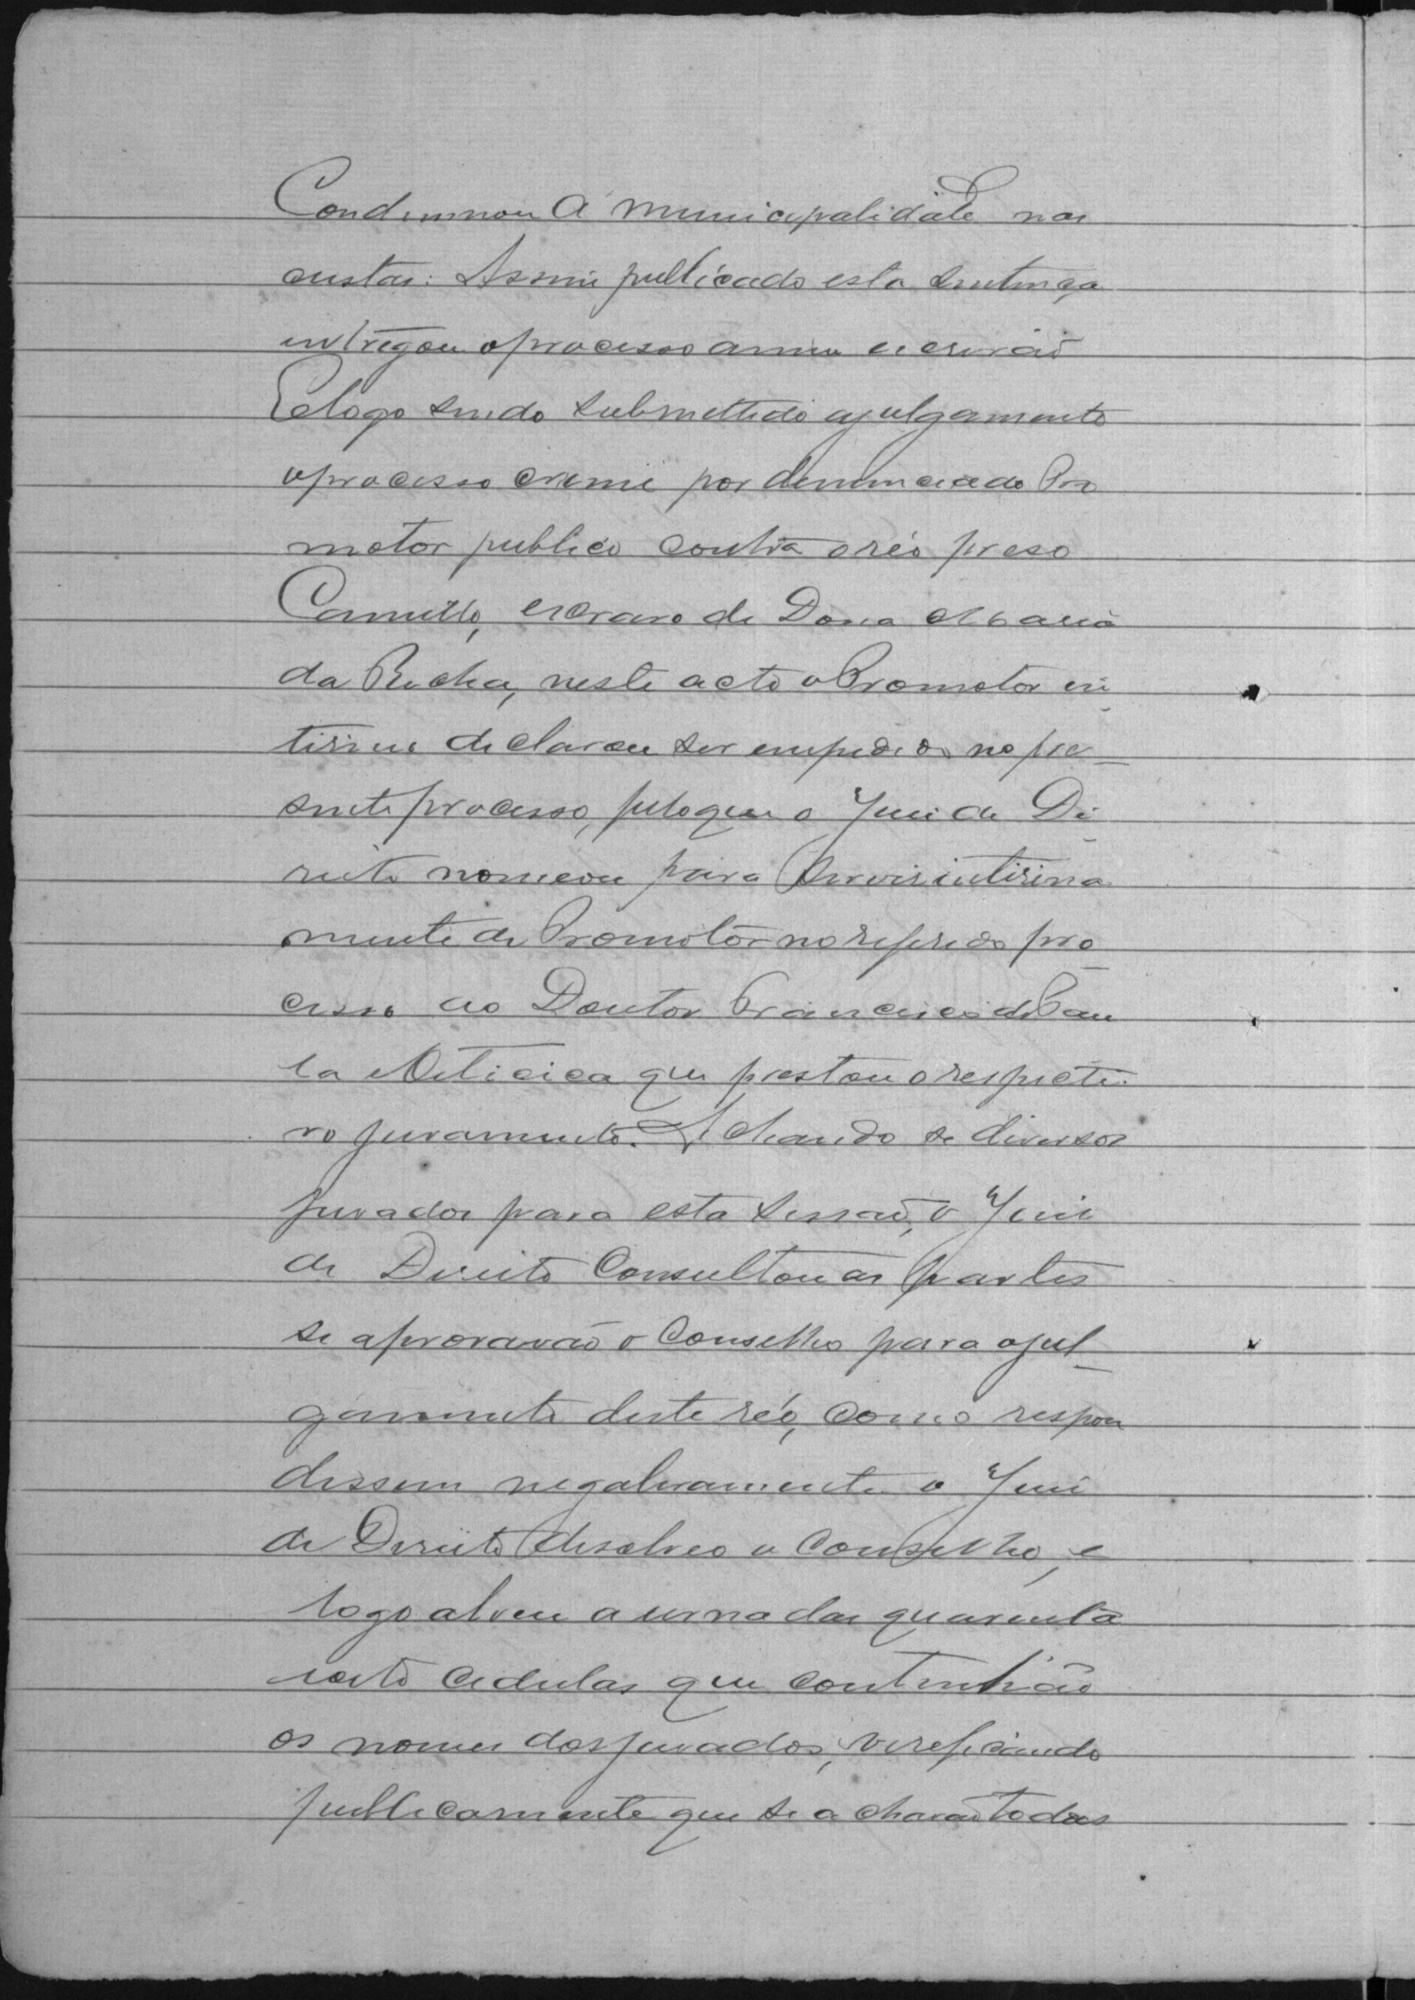 Condemnou a municipalidade nas
custas: Assim publicado esta sentença
entregou o processo a mim escrivão
E logo sendo submettido a julgamento
o processo crime por denuncia do Pro
motor publico contra o réo preso
Camillo, escravo de Dona Maria
da Rocha, neste acto o Promotor in
tirino declarou ser empedido no pre-
sente processo, pelo que o Juiz de Di-
reito nomeou para servir intirina
mente de Promotor no referido pro-
cesso ao Doutor Francisco de Pau
la que prestou o respecti-
vo juramento. Achando se diversos
jurados para esta sessão, o Juiz
de Direito consultou as partes
se aprovavão o Conselho para o jul-
gamento deste réo, como respon
dessem negativamente o Juiz
de Direito disolveo o Conselho, e
logo abreu a urna das quarenta
oito cedulas que continhão
os nomes dos jurados, verificando
publicamente que se achavão todas